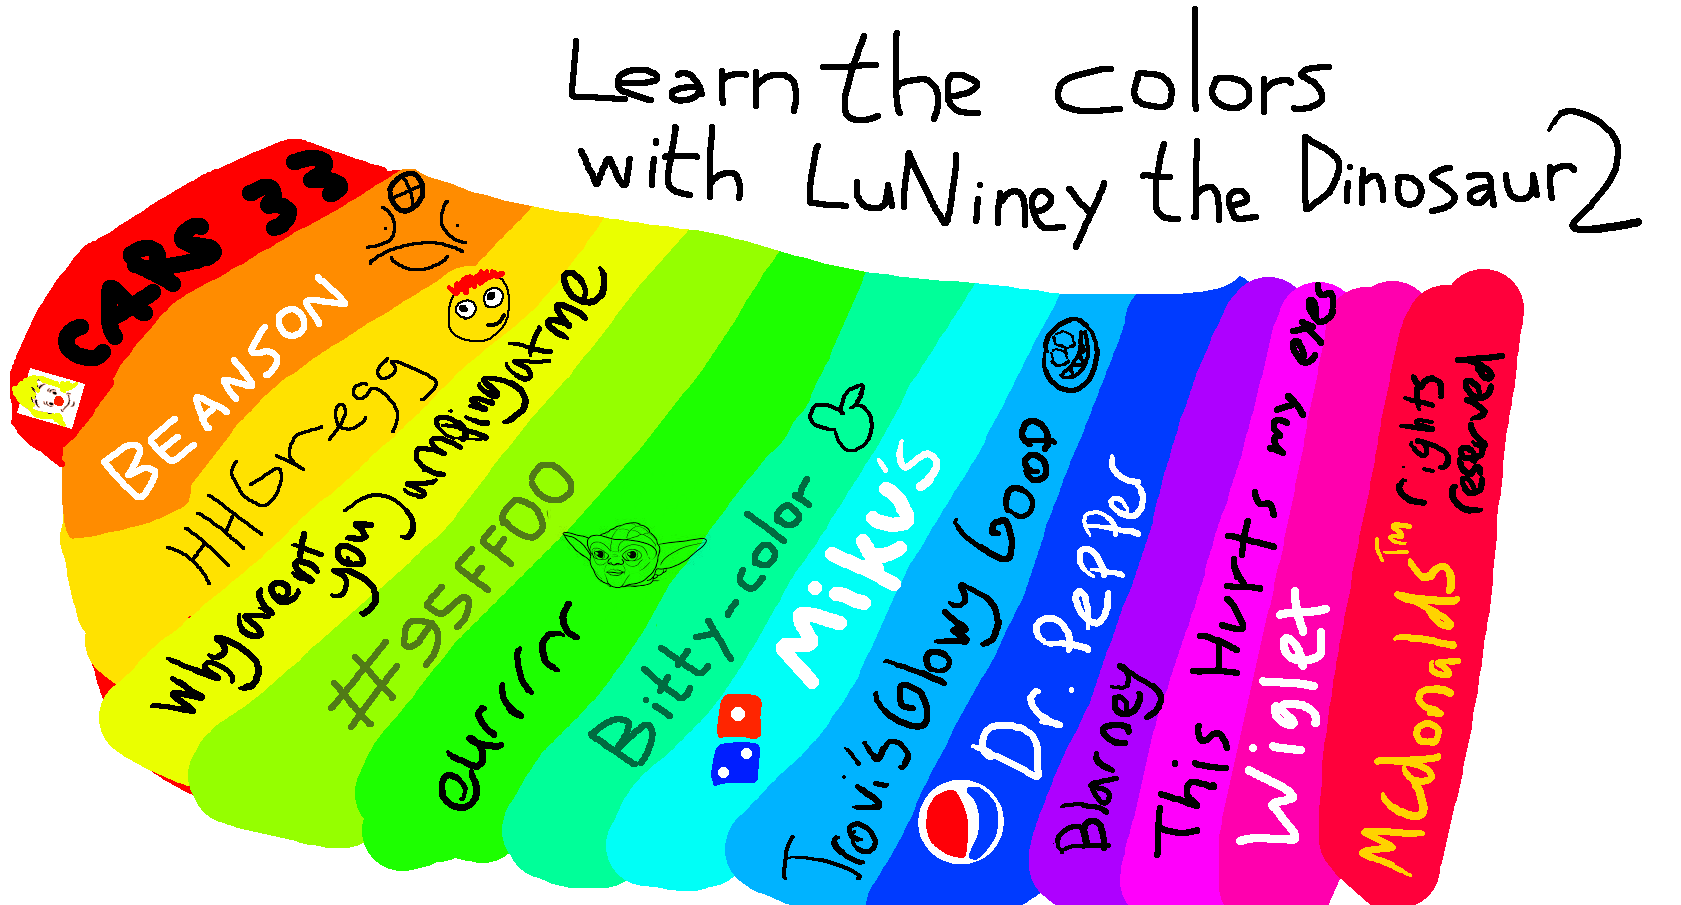 Learn the colors
with LuNiney the Dinosaur 2
CARS 33
BEANSON
HHGregg
Whyarent
you Jumpingatme
#95FFD0
eurrrr
Bitty-color
Miku's
Trovi's Glowy Goop
Dr. Pepper
Blarney
This Hurts my eyes
Wiglet
Mcdonalds™ rights
reserved